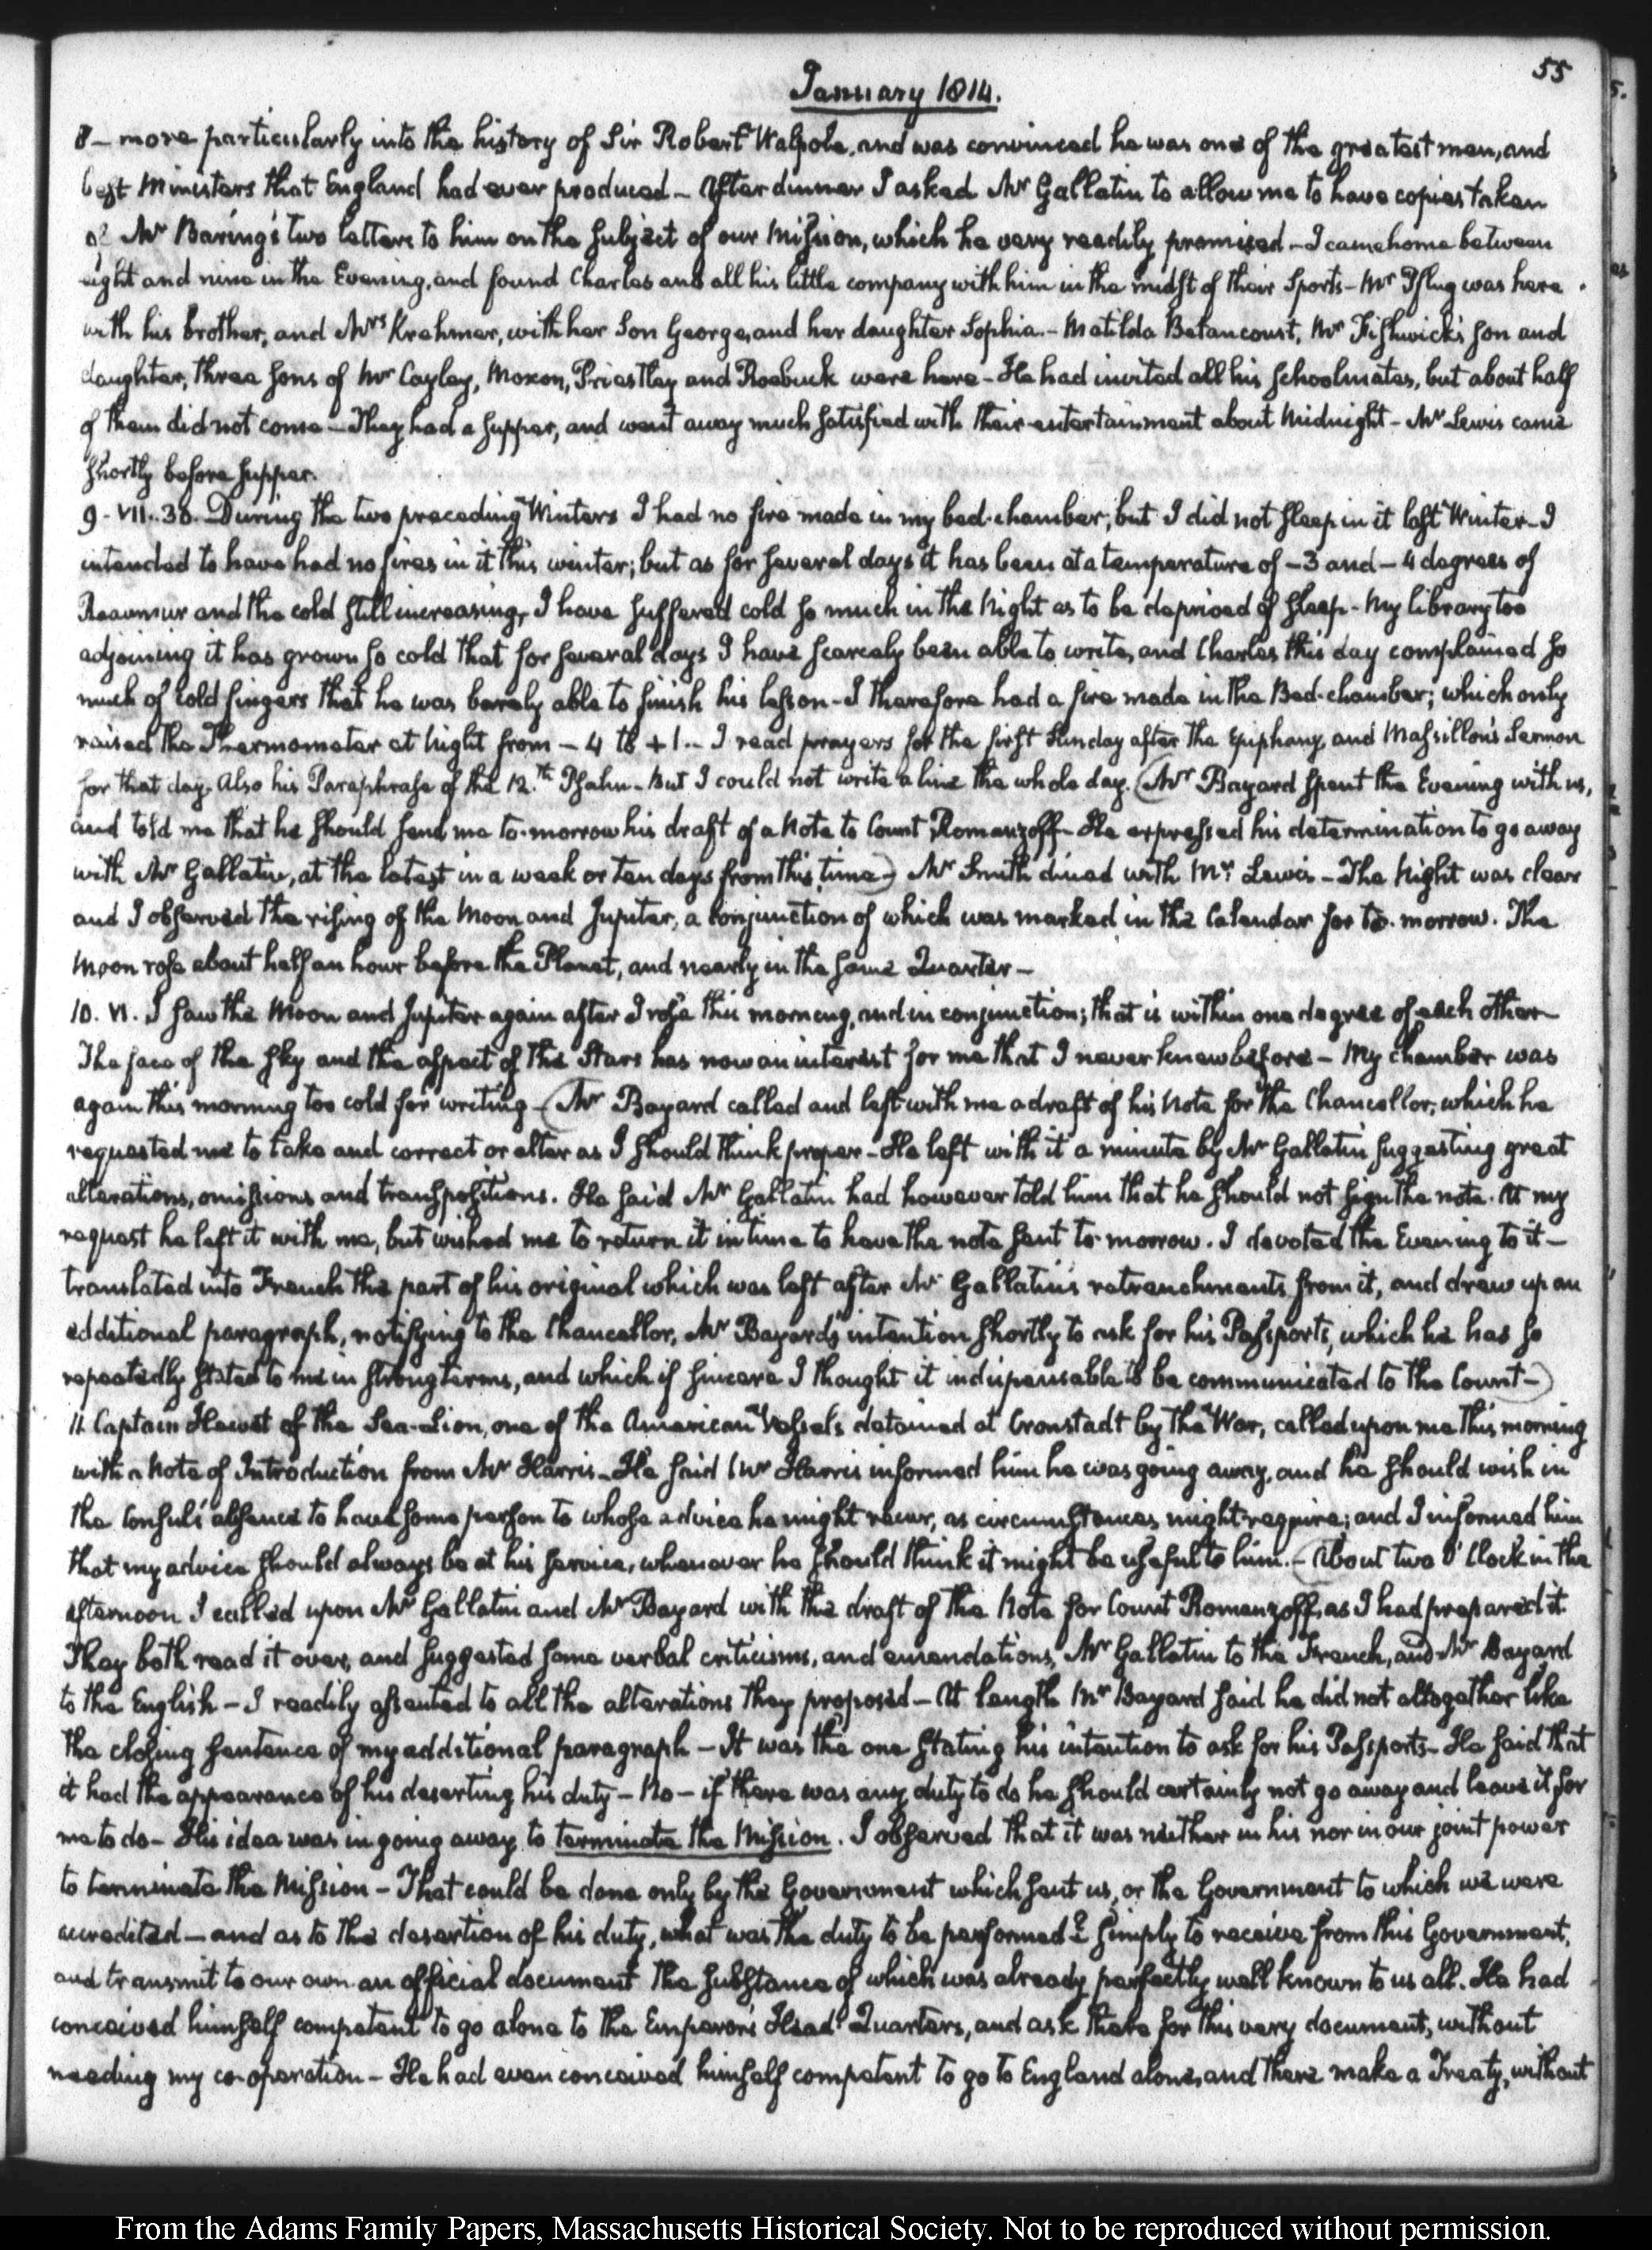 55
January 1814.
8 – more particularly into the history of Sir Robert Walpole, and was convinced he was one of the greatest men, and
best Ministers that England had ever produced – After dinner I asked Mr Gallatin to allow me to have copies taken
of Mr Baring's two letters to him on the subject of our Mission, which he very readily promised – I came home between
eight and nine in the Evening, and found Charles and all his little company with him in the midst of their Sports – Mr Pflug was here
with his brother, and Mrs Krehmer, with her Son George, and her daughter Sophia. – Matilda Betancourt, Mr Fishwick's son and
daughter, three sons of Mr Cayley, Moxon, Priestley and Roebuck were here – He had invited all his schoolmates, but about half
of them did not come – They had a supper, and went away much satisfied with their entertainment about Midnight – Mr Lewis came
shortly before supper.
9 - VII..30. During the two preceding Winters I had no fire made in my bed-chamber; but I did not sleep in it last Winter – I
intended to have had no fires in it this winter; but as for several days it has been at a temperature of – 3 and – 4 degrees of
Reaumur and the cold still increasing, I have suffered cold so much in the Night as to be deprived of sleep – My library too
adjoining it has grown so cold that for several days I have scarcely been able to write, and Charles this day complained so
much of cold fingers that he was barely able to finish his lesson – I therefore had a fire made in the Bed-chamber; which only
raised the Thermometer at Night from – 4 to + 1. – I read prayers for the first Sunday after the Epiphany, and Massillon's Sermon
for that day. Also his Paraphrase of the 12.th Psalm – But I could not write a line the whole day. (Mr Bayard spent the Evening with us,
and told me that he should send me to-morrow his draft of a Note to Count Romanzoff – He expressed his determination to go away
with Mr Gallatin, at the latest in a week or ten days from this time –) Mr Smith dined with Mr Lewis – The Night was clear
and I observed the rising of the Moon and Jupiter, a conjunction of which was marked in the Calendar for to-morrow. The
Moon rose about half an hour before the Planet, and nearly in the same Quarter –
10. VI. I saw the Moon and Jupiter again after I rose this morning, and in conjunction; that is within one degree of each other –
The face of the sky and the aspect of the Stars has now an interest for me that I never knew before – My chamber was
again this morning too cold for writing – (Mr Bayard called and left with me a draft of his Note for the Chancellor, which he
requested me to take and correct or alter as I should think proper – He left with it a minute by Mr Gallatin suggesting great
alterations, omissions and transpositions. He said Mr Gallatin had however told him that he should not sign the note. At my
request he left it with me, but wished me to return it in time to have the note sent to-morrow. I devoted the Evening to it –
translated into French the part of his original which was left after Mr Gallatin's retrenchments from it, and drew up an
additional paragraph, notifying to the Chancellor, Mr Bayard's intention shortly to ask for his Passports, which he has so
repeatedly stated to me in strong terms, and which if sincere I thought it indispensable to be communicated to the Count –)
11. Captain Hewet of the Sea-Lion, one of the American Vessels detained at Cronstadt by the War, called upon me this morning
with a Note of Introduction from Mr Harris – He said Mr Harris informed him he was going away, and he should wish in
the Consul's absence to have some person to whose advice he might recur, as circumstances might require; and I informed him
that my advice should always be at his service, whenever he should think it might be useful to him. – (About two O'Clock in the
afternoon I called upon Mr Gallatin and Mr Bayard with the draft of the Note for Count Romanzoff, as I had prepared it.
They both read it over, and suggested some verbal criticisms, and emendations, Mr Gallatin to the French, and Mr Bayard
to the English – I readily assented to all the alterations they proposed – At length Mr Bayard said he did not altogether like
the closing sentence of my additional paragraph – It was the one stating his intention to ask for his Passports – He said that
it had the appearance of his deserting his duty – No – if there was any duty to do he should certainly not go away and leave it for
me to do – His idea was in going away, to terminate the Mission. I observed that it was neither in his nor in our joint power
to terminate the Mission – That could be done only by the Government which sent us, or the Government to which we were
accredited – and as to the desertion of his duty, what was the duty to be performed? Simply to receive from this Government,
and transmit to our own an official document the substance of which was already perfectly well known to us all. He had
conceived himself competent to go alone to the Emperor's Head Quarters, and ask there for this very document, without
needing my co-operation – He had even conceived himself competent to go to England alone, and there make a Treaty, without
From the Adams Family Papers, Massachusetts Historical Society. Not to be reproduced without permission.